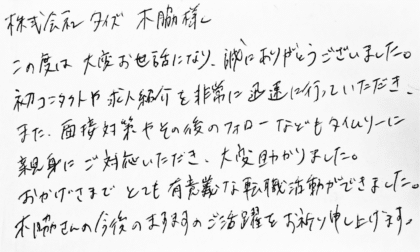 株式会社 タイズ 木脇様
この度は大変お世話になり、誠にありがとうございました。
初コンタクトや求人紹介を非常に迅速に行っていただき、
また、面接対策やその後のフォローなどもタイムリーに
親身にご対応いただき、大変助かりました。
おかげさまでとても有意義な転職活動ができました。
木脇さんの今後のますますのご活躍をお祈り申し上げます。